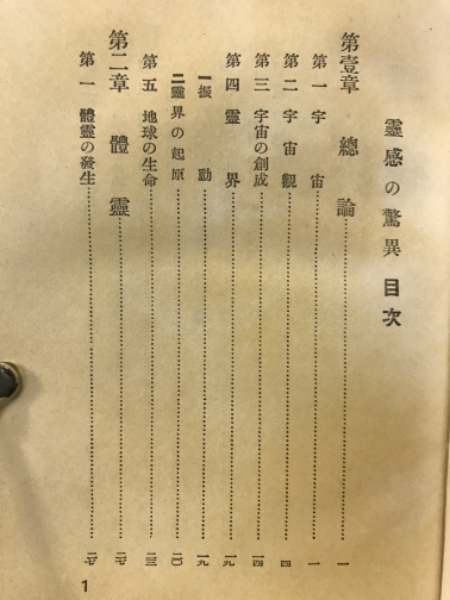 靈感の驚異 目次
第壹章 總論……一
第一 宇宙……一
第二 宇宙觀……四
第三 宇宙の創成……一四
第四 靈界……一九
一振動……一九
二靈界の起原……二〇
第五 地球の生命……二三
第二章 體靈……二七
第一 體靈の發生……二七
1